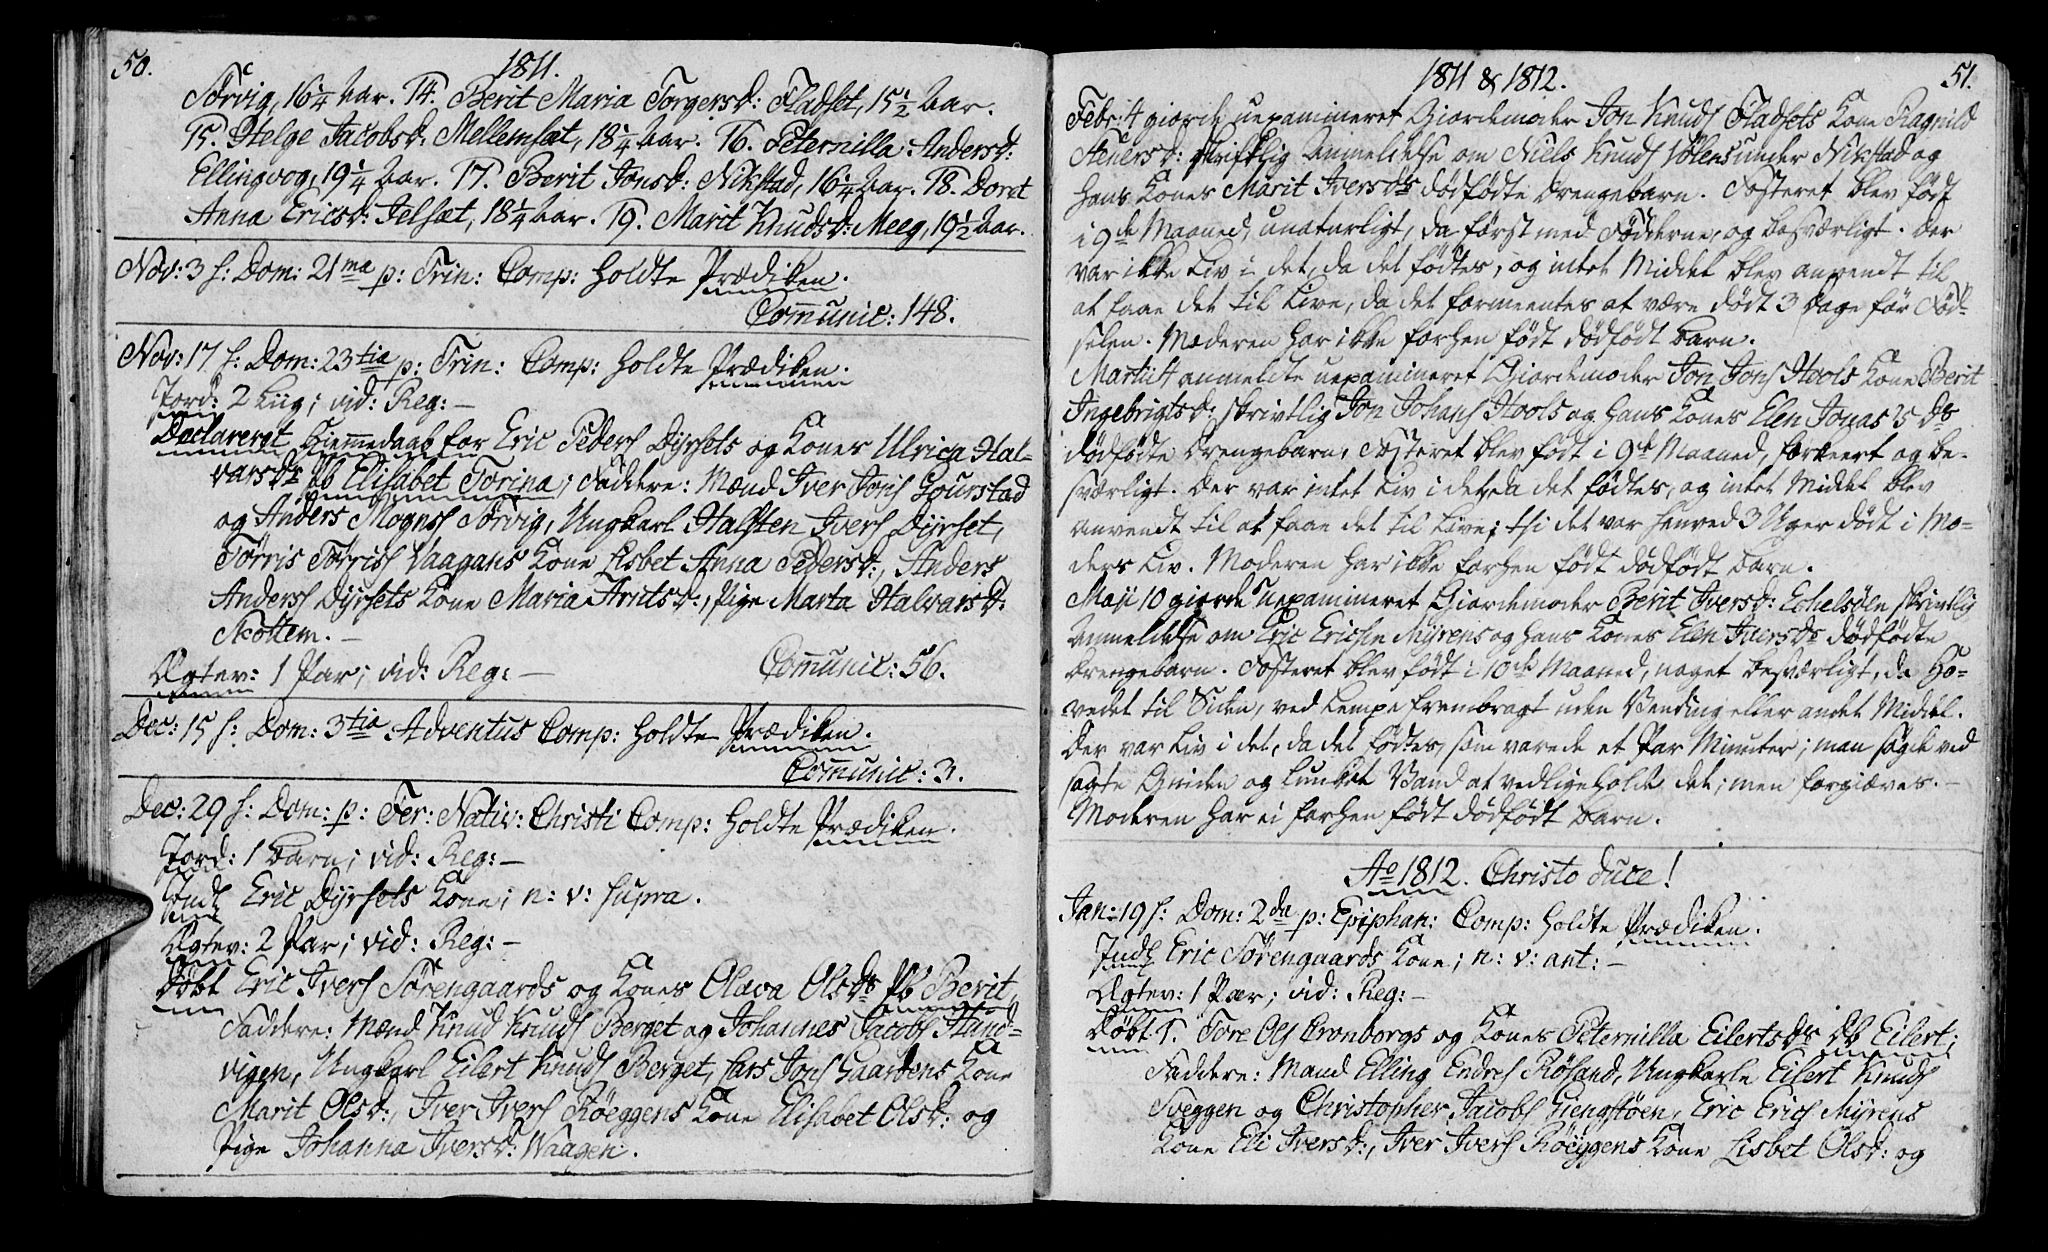 50.
1811.
Torvig, 16 1/4 Aar. 14. Berit Maria Torgersd: Fladset, 15 1/2 Aar.
15. Helge Jacobsd: Mellemsæt, 18 1/4 Aar. 16. Peternilla Andersd:
Ellingvog, 19 1/4 Aar. 17. Berit Jonsd: Nikstad, 16 1/4 Aar. 18. Doret
Anna Ericsd: Jelsæt, 18 1/4 Aar. 19. Marit Knudsd: Meeg, 19 1/2 Aar.
Nov: 3 f: Dom: 21ma p: Trin: Comp: holdte Prædiken.
Communic: 148.
Nov: 17 f: Dom: 23tia p: Trin: Comp: holdte Prædiken.
Jord: 2 Liig; vid: Reg: —
Declareret Hiemmedaab for Eric Peders Dyrsets og Kones Ulrica Hal-
varsdr Pb Elisabet Torina; Faddere: Mænd Iver Jons Gourstad
og Anders Mogns Torvig, Ungkarl Halsten Ivers Dyrset,
Tørris Tørriss Vaagans Kone Lisbet Anna Pedersd:, Anders
Anderss Dyrsets Kone Maria Arntsd:, Pige Marta Halvarsd:
Skottem. —
Ægtev: 1 Par; vid: Reg: —
Communic: 56.
Dec: 15 f: Dom: 3tia Adventus Comp: holdte Prædiken.
Communic: 3.
Dec: 29 f: Dom: p: Fer: Nativ: Christi Comp: holdte Prædiken.
Jord: 1 Barn; vid: Reg: —
Indl Eric Dyrsets Kone; n: v: supra.
Ægtev: 2 Par; vid: Reg: —
Døbt Eric Ivers Sørengaards og Kones Olava Olsdr Pb Berit,
Faddere: Mænd Knud Knuds Berget og Johannes Jacobs Hand-
vigen, Ungkarl Eilert Knuds Berget, Lars Jons Gaardens Kone
Marit Olsd:, Iver Ivers Røeggens Kone Elisabet Olsd: og
Pige Johanna Iversd: Waagen.
1811 & 1812.
51.
Febr: 4 giorde uexamineret Giordemoder Jon Knuds Fladsets Kone Ragnild
Steuersd: skriftlig Anmeldelse om Niels Knuds Volens under Nikstad og
hans Kones Marit Iversdrs dødfødte Drengebarn. Fosteret blev født
i 9de Maaned, unaturligt, da først med Fødderne, og besværligt. Der
var ikke Liv i det, da det fødtes, og intet Middel blev anvendt til
at faae det til Live, da det formeentes at være dødt 3 Dage før Fød-
selen. Moderen har ikke forhen født dødfødt Barn.
Martii 4 anmeldte uexamineret Giordemoder Jon Jons Hools Kone Berit
Ingebrigtsd: skrivtlig Jon Johans Hools og hans Kones Elen Jonas Ds
dødfødte Drengebarn, Fosteret blev født i 9de Maaned, forkeert og be-
sværligt. Der var intet Liv i det, da det fødtes, og intet Middel blev
anvendt til at faae det til Live; thi det var henved 3 Uger dødt i Mo-
ders Liv. Moderen har ikke forhen født dødfødt Barn.
Maji 10 giorde uexamineret Giordemoder Berit Iversd: Echelsølen skrivtlig
Anmeldelse om Eric Ericsen Myrens og hans Kones Elen Iversdrs dødfødte
Drengebarn. Fosteret blev født i 10de Maaned, noget besværligt, da Ho-
vedet til Siden, ved Lempe frembragt uden Vending eller andet Middel.
Der var Liv i det, da det fødtes, som varede et Par Minuter; man søgte ved
sagte Gniden og lunket Vand at vedligeholde det; men forgiæves. —
Moderen har ei forhen født dødfødt Barn.
Ao 1812. Christo duce!
Jan: 19 f: Dom: 2da p: Epiphan: Comp: holdte Prædiken.
Indl Eric Sørengaards Kone; n: v: ant: —
Ægtev: 1 Par; vid: Reg: —
Døbt 1. Tore Ols Cronborgs og Kones Peternilla Eilertsdrs Db Eilert;
Faddere: Mand Elling Endres Røsand, Ungkarle Eilert Knuds
Sveggen og Christopher Jacobs Giengstøen, Eric Erics Myrens
Kone Eli Iversd:, Iver Ivers Røeggens Kone Lisbet Olsd: og